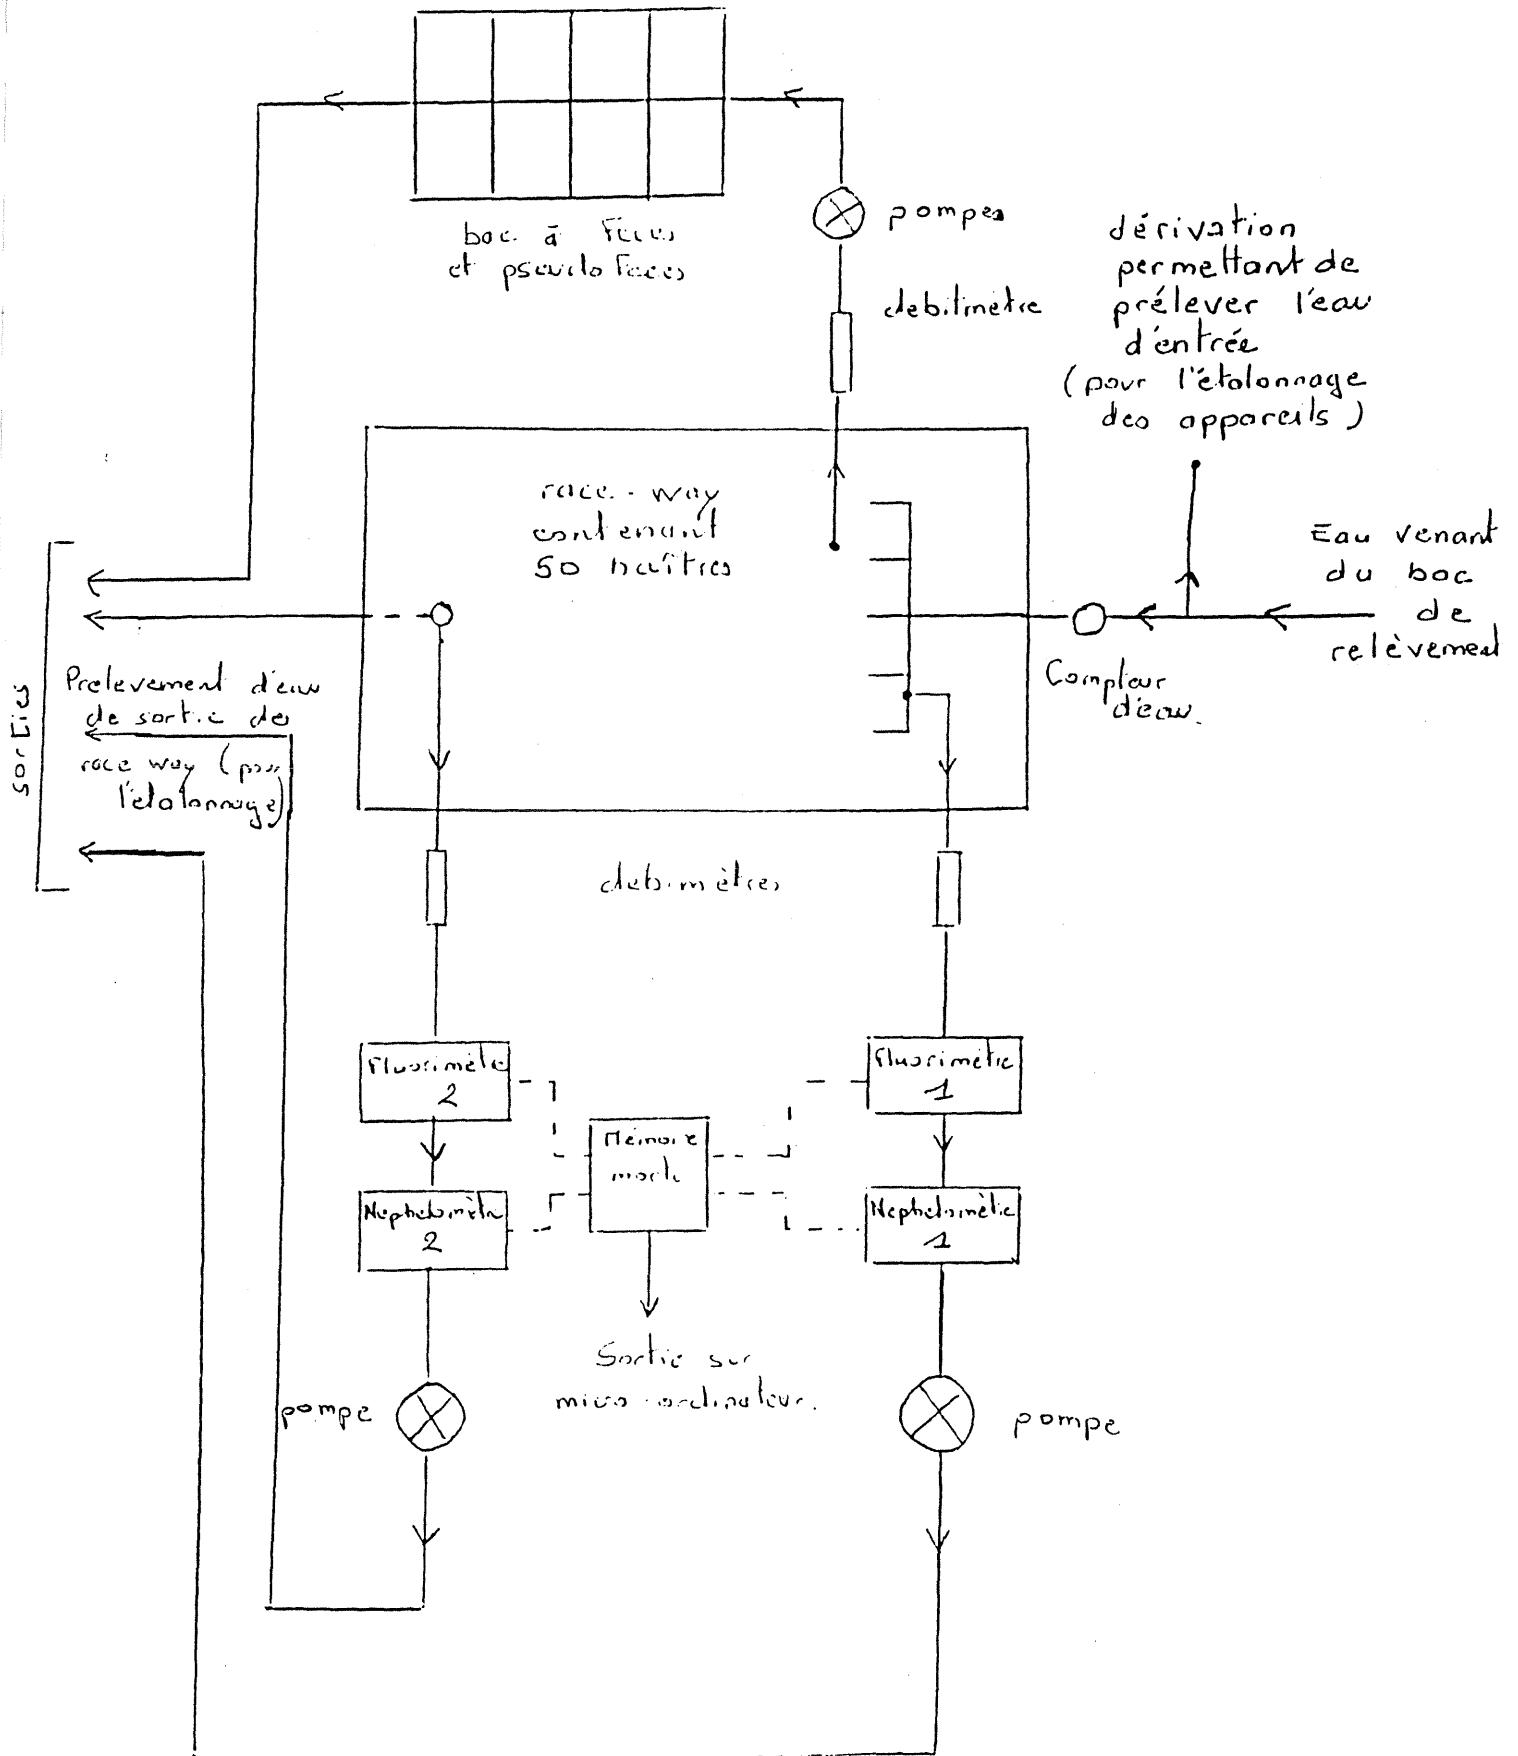 bac à Fèces
et pseudo Feces
pompes
debitmètre
dérivation
permettant de
prélever l'eau
d'entrée
(pour l'étalonnage
des appareils)
race-way
contenant
50 huîtres
Eau venant
du bac
de
relèvement
Compteur
d'eau.
sorties
Prelevement d'eau
de sortie de
race way (pour
l'étalonnage)
debimètres
Fluorimètre
2
Fluorimètre
1
Mémoire
morte
Nephelomètre
2
Nephelomètre
1
Sortie sur
micro-ordinateur.
pompe
pompe